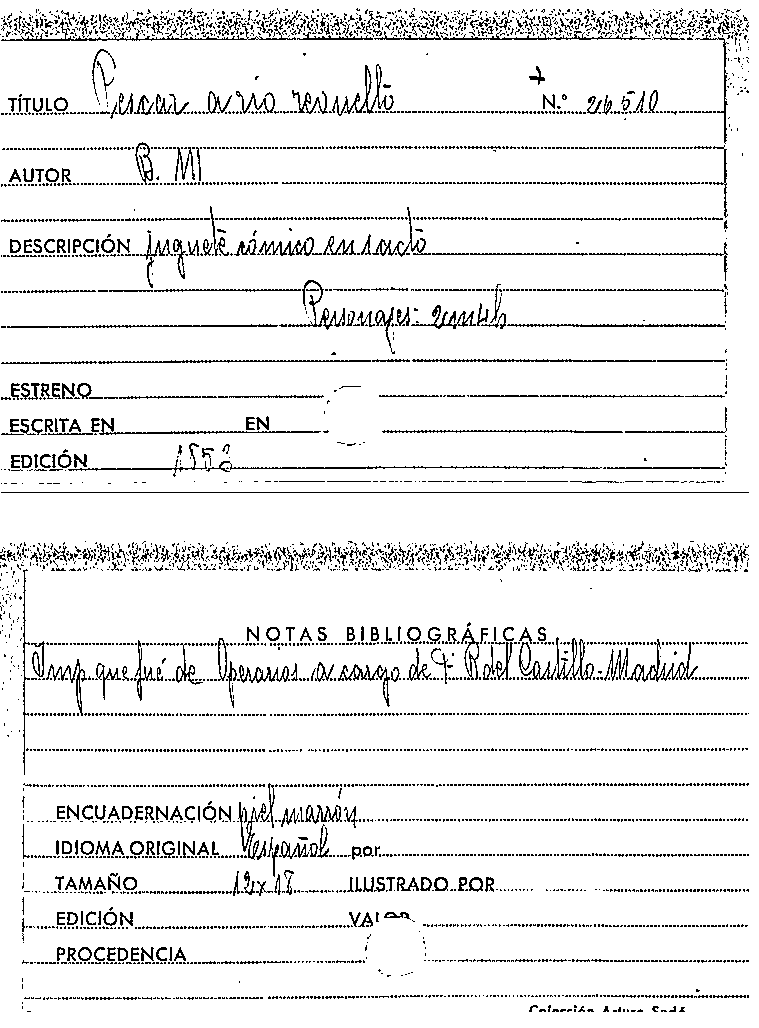 TÍTULO Pescar a rio revuelto N.º 26.510
AUTOR B. MI
DESCRIPCIÓN juguete cómico en 1 acto
Personajes: 2 m 4 h
ESTRENO
ESCRITA EN EN
EDICIÓN 1858
NOTAS BIBLIOGRÁFICAS
Imp que fué de Operarios a cargo de R del Castillo - Madrid
ENCUADERNACIÓN piel marrón
IDIOMA ORIGINAL Español por
TAMAÑO 12x18 ILUSTRADO POR
EDICIÓN VALOR
PROCEDENCIA
Colección Arturo Sedó